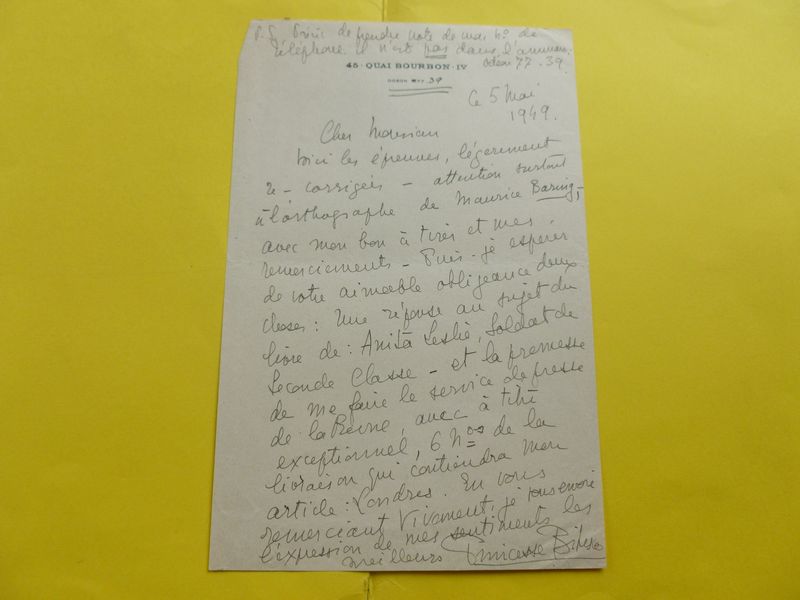 P.S. Prière de prendre note de mon no de
téléphone il n'est pas dans l'annuaire
45 · QUAI BOURBON · IV Odéon 77.39.
ODEON 77-39
Ce 5 Mai
1949.
Cher Monsieur
Voici les épreuves, légèrement
re-corrigées - attention surtout
à l'orthographe de Maurice Baring,-
avec mon bon à tirer et mes
remerciements - Puis-je espérer
de votre aimable obligeance deux
choses : Une réponse au sujet du
livre de : Anita Leslie, Soldat de
Seconde Classe - et la promesse
de me faire le service de presse
de la Revue, avec à titre
exceptionnel, 6 nos de la
livraison qui contiendra mon
article : Londres. En vous
remerciant vivement, je vous envoie
l'expression de mes sentiments les
meilleurs Princesse Bibesco